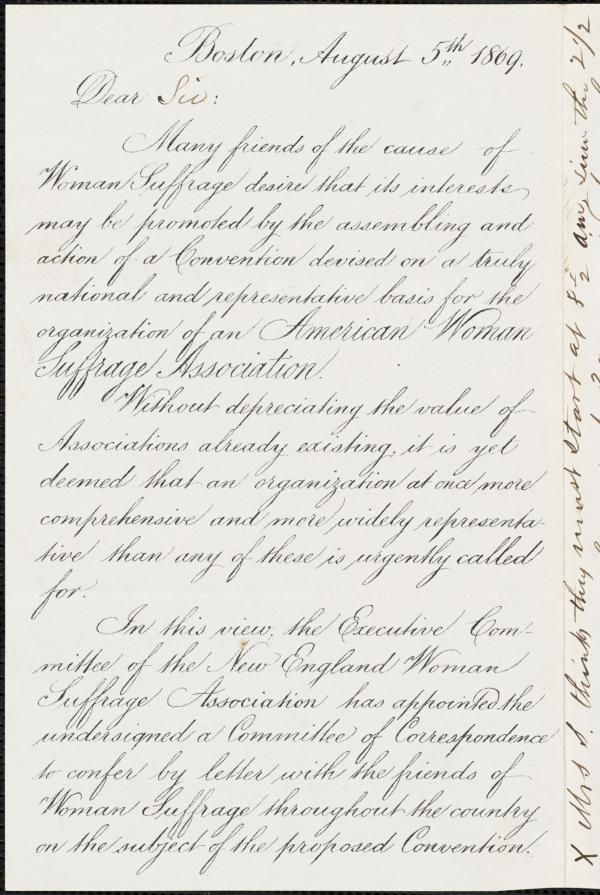 Boston, August 5th 1869.
Dear Sir:
Many friends of the cause of
Woman Suffrage desire that its interests
may be promoted by the assembling and
action of a Convention devised on a truly
national and representative basis for the
organization of an American Woman
Suffrage Association.
Without depreciating the value of
Associations already existing, it is yet
deemed that an organization at once more
comprehensive and more widely representa-
tive than any of these is urgently called
for.
In this view, the Executive Com-
mittee of the New England Woman
Suffrage Association has appointed the
undersigned a Committee of Correspondence
to confer by letter with the friends of
Woman Suffrage throughout the country
on the subject of the proposed Convention.
X Mrs S. thinks they must start at 8 1/2 a.m. the 2 1/2